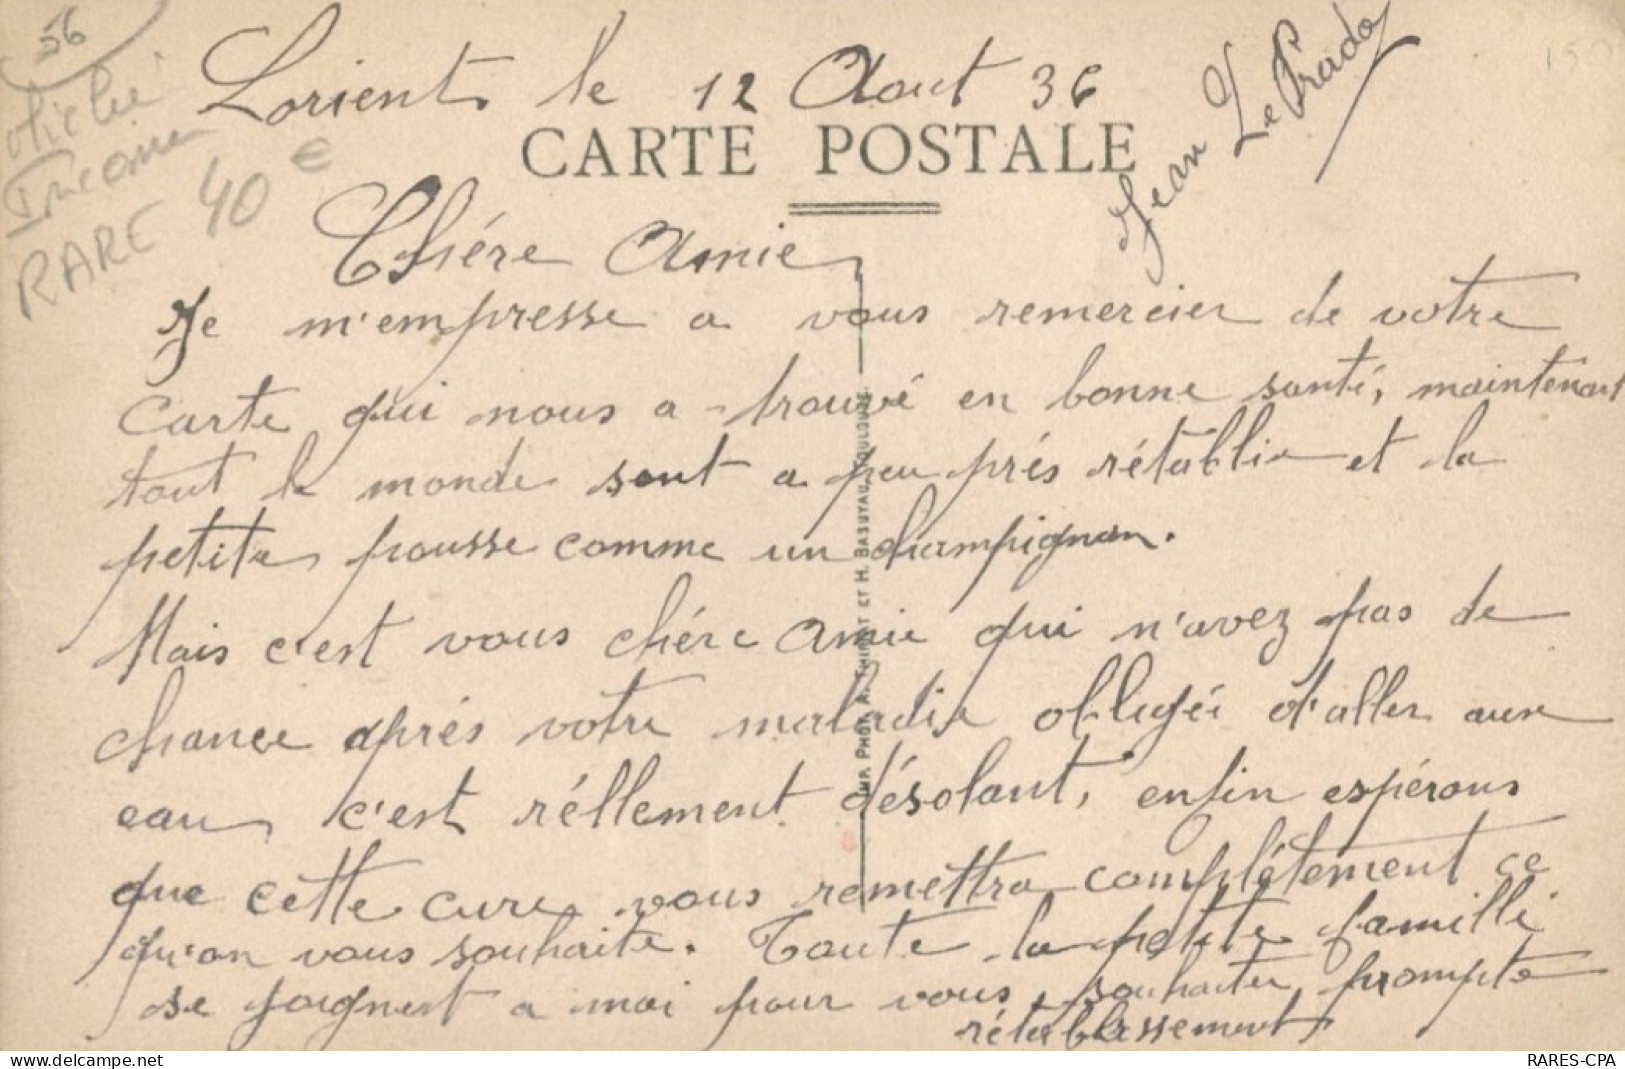 56
cliché
RARE 40 €
Lorient le 12 Aout 36
Jean Le Prado
CARTE POSTALE
Chére Amie,
Je m'empresse a vous remercier de votre
Carte qui nous a trouvé en bonne santé, maintenant
tout le monde sont a peu prés rétablie et la
petite pousse comme un champignon.
Mais c'est vous chére Amie qui n'avez pas de
chance aprés votre maladie obligéé d'aller aux
eau, c'est réllement désolant, enfin espérons
que cette cure vous remettra complétement ce
qu'on vous souhaite. Toute la petite famille
se joignent a moi pour vous souhaiter prompte
rétablissement
IMP. PHOT. A. THIRIAT ET H. BASUYAU, TOULOUSE
RARES-CPA